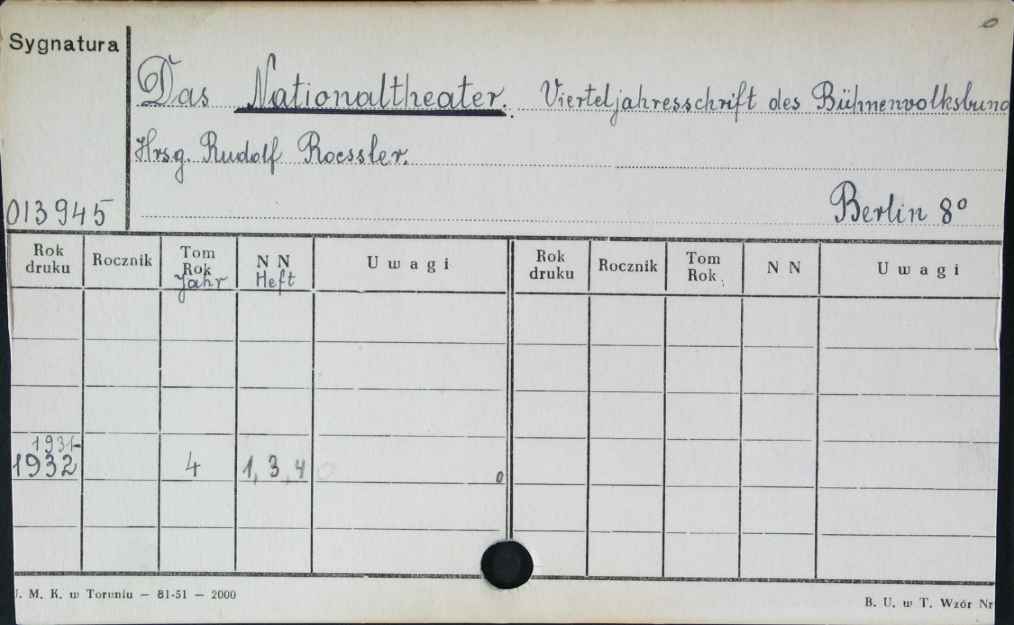 o
Sygnatura
Das Nationaltheater. Vierteljahresschrift des Bühnenvolksbund
Hrsg. Rudolf Roessler.
013945
Berlin 8°
Rok druku Rocznik Tom Rok Jahr N N Heft Uwagi Rok druku Rocznik Tom Rok N N Uwagi
1931-
1932 4 1, 3, 4 o
J. M. K. w Toruniu — 81-51 — 2000
B. U. w T. Wzór Nr